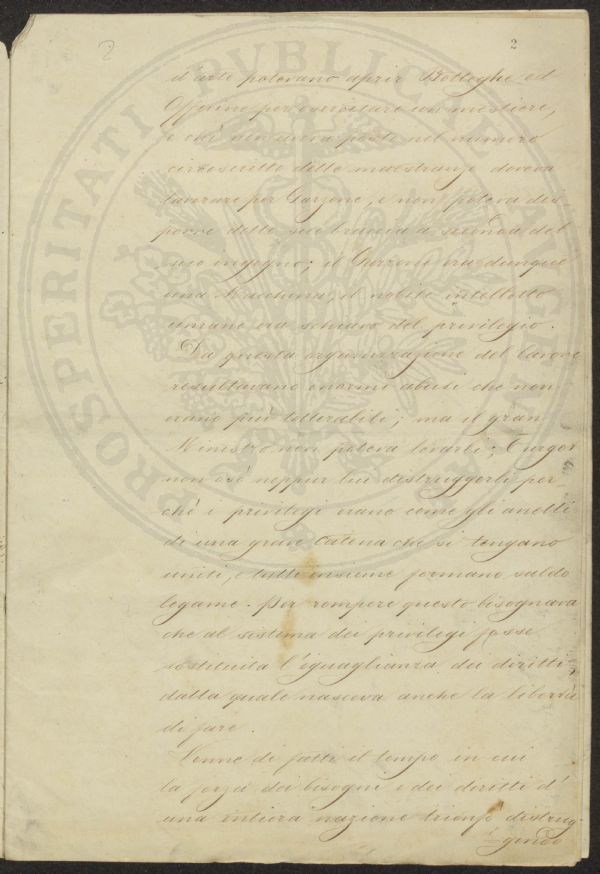 2
2
d'arte potevano aprir Botteghe ed
Officine per esercitare un mestiere,
e chi non aveva posto nel numero
circoscritto delle maestranze doveva
lavorare per Garzone, e non poteva dis-
porre delle sue braccia a seconda del
suo ingegno; il Garzone era dunque
una Macchina, il nobile intelletto
umano era schiavo del privilegio.
Da questa organizzazione del lavoro
resultavano enormi abusi che non
erano più tollerabili; ma il gran
Ministro non poteva levarli; Turgot
non osò neppur lui distruggerli per
chè i privilegi erano come gli anelli
di una gran Catena che si tengano
uniti, e tutti insieme formano saldo
legame. Per rompere questo bisognava
che al sistema dei privilegi fosse
sostituita l'eguaglianza dei diritti,
dalla quale nasceva anche la libertà
di fare.
Venne di fatti il tempo in cui
la forza dei bisogni e dei diritti d'
una intiera nazione trionfò distrug-
gendo
PROSPERITATI PVBLICAE AVGENDAE